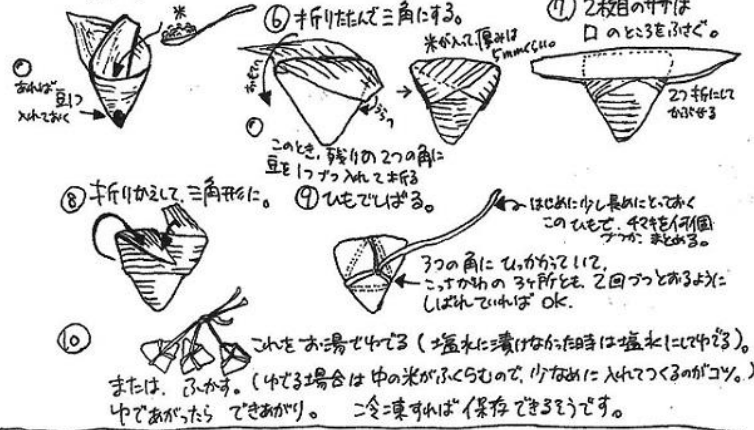 米
あれば
豆1つ
入れておく
⑥ 折りたたんで三角にする。
おもてへ
うらへ
米が入って、厚みは
5mmくらい。
このとき、残りの2つの角に
豆を1つづつ入れて折る
⑦ 2枚目のササは
口のところをふさぐ。
2つ折にして
かぶせる
⑧ 折りかえして、三角形に。
⑨ ひもでしばる。
はじめに少し長めにとっておく
このひもで、チマキを何個
づつか まとめる。
3つの角に ひっかかっていて、
こっちがわの 3ヶ所とも、2回づつとおるように
しばれていれば OK.
⑩ これを お湯でゆでる(塩水に漬けなかった時は塩水にしてゆでる)。
または、ふかす。(ゆでる場合は中の米がふくらむので、少なめに入れてつくるのがコツ。)
ゆであがったら できあがり。 冷凍すれば 保存できるそうです。